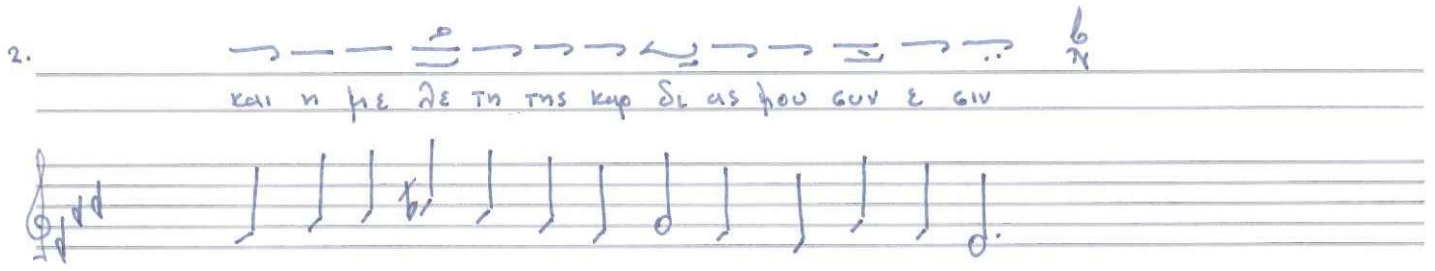 2.
και η με λε τη της καρ δι ας μου συν ε σιν